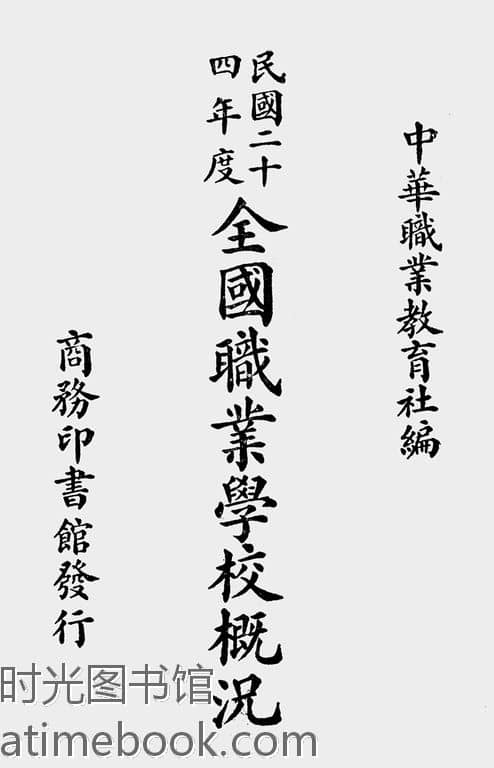 中華職業教育社編
民國二十
四年度
全國職業學校概況
商務印書館發行
时光图书馆
atimebook.com